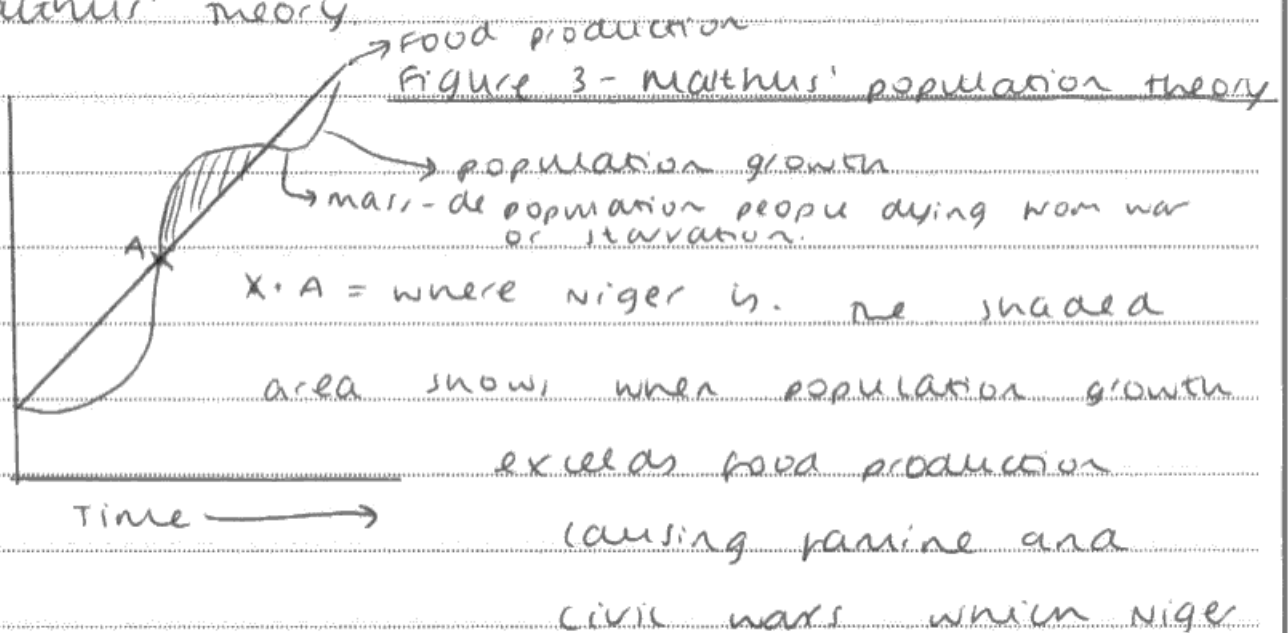 theory.
Food production
Figure 3 - Malthus' population theory
population growth
mass-de population people dying from war
or starvation.
A
X. A = where Niger is. The shaded
area shows when population growth
exceeds food production
Time
causing famine and
civil wars which Niger